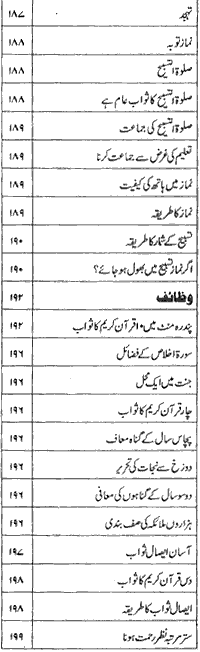 تہجد ۱۸۷
نماز توبہ ۱۸۸
صلوۃ التسبیح ۱۸۸
صلوۃ التسبیح کا ثواب عام ہے ۱۸۸
صلوۃ التسبیح کی جماعت ۱۸۹
تعلیم کی غرض سے جماعت کرنا ۱۸۹
نماز میں ہاتھ کی کیفیت ۱۸۹
نماز کا طریقہ ۱۸۹
تسبیح کے شمار کا طریقہ ۱۹۰
اگر نماز تسبیح میں بھول ہو جائے؟ ۱۹۰
وظائف ۱۹۲
پندرہ منٹ میں ۱۰ قرآن کریم کا ثواب ۱۹۲
سورۃ اخلاص کے فضائل ۱۹۶
جنت میں ایک محل ۱۹۶
چار قرآن کریم کا ثواب ۱۹۶
پچاس سال کے گناہ معاف ۱۹۶
دوزخ سے نجات کی تحریر ۱۹۶
دو سو سال کے گناہوں کی معافی ۱۹۶
ہزاروں ملائکہ کی صف بندی ۱۹۶
آسان ایصال ثواب ۱۹۷
دس قرآن کریم کا ثواب ۱۹۸
ایصال ثواب کا طریقہ ۱۹۸
ستر مرتبہ نظر رحمت ہونا ۱۹۹